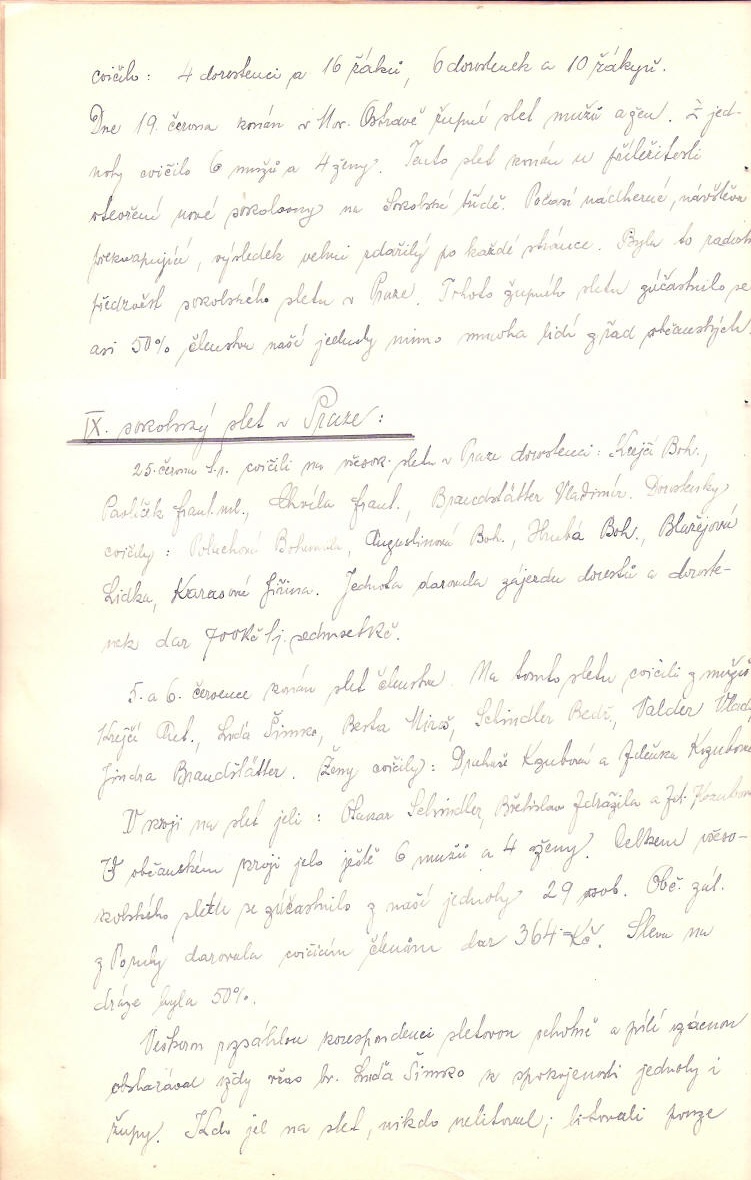 cvičilo: 4 dorostenci a 16 žáků, 6 dorostenek a 10 žákyň.
Dne 19. června konán v Mor. Ostravě župní slet mužů a žen. Z jed-
noty cvičilo 6 mužů a 4 ženy. Tento slet konán u příležitosti
otevření nové sokolovny na Sokolské třídě. Počasí nádherné, návštěva
překvapující, výsledek velmi zdařilý po každé stránce. Byla to radostn
předzvěst sokolského sletu v Praze. Tohoto župního sletu zúčastnilo se
asi 50% členstva naší jednoty mimo mnoha lidí z řad občanských.
IX. sokolský slet v Praze:
25. června t.r. cvičili na všesok. sletu v Praze dorostenci: Krejčí Boh.,
Pavlíček frant. ml., Chvíla frant., Brandstätter Vladimír. Dorostenky
cvičily: Poluchová Bohumila, Augustinová Boh., Hrubá Boh., Blažejová
Lidka, Karasová Jiřina. Jednota darovala zájezdu dorostů a doroste-
nek dar 700Kč tj. sedmsetKč.
5. a 6. července konán slet členstva. Na tomto sletu cvičili z mužů
Krejčí Ret., Luďa Šimko, Berta Miroš, Schindler Bedř., Valder Vlad,
Jindra Brandstätter. Ženy cvičily: Drahuše Kozubová a Zdeňka Kozubová
V kroji na slet jeli: Otakar Schindler, Břetislav Zdražila a Zd. Kozubov
V občanském kroji jelo ještě 6 mužů a 4 ženy. Celkem všeso-
kolského sletu se zúčastnilo z naší jednoty 29 osob. Obč. zál.
z Poruby darovala cvičícím členům dar 364 Kč. Sleva na
dráze byla 50%.
Veškerou rozsáhlou korespondenci sletovou ochotně a pílí vzácnou
obstarával vždy včas br. Luďa Šimko k spokojenosti jednoty i
župy. Kdo jel na slet, nikdo nelitoval; litovali pouze